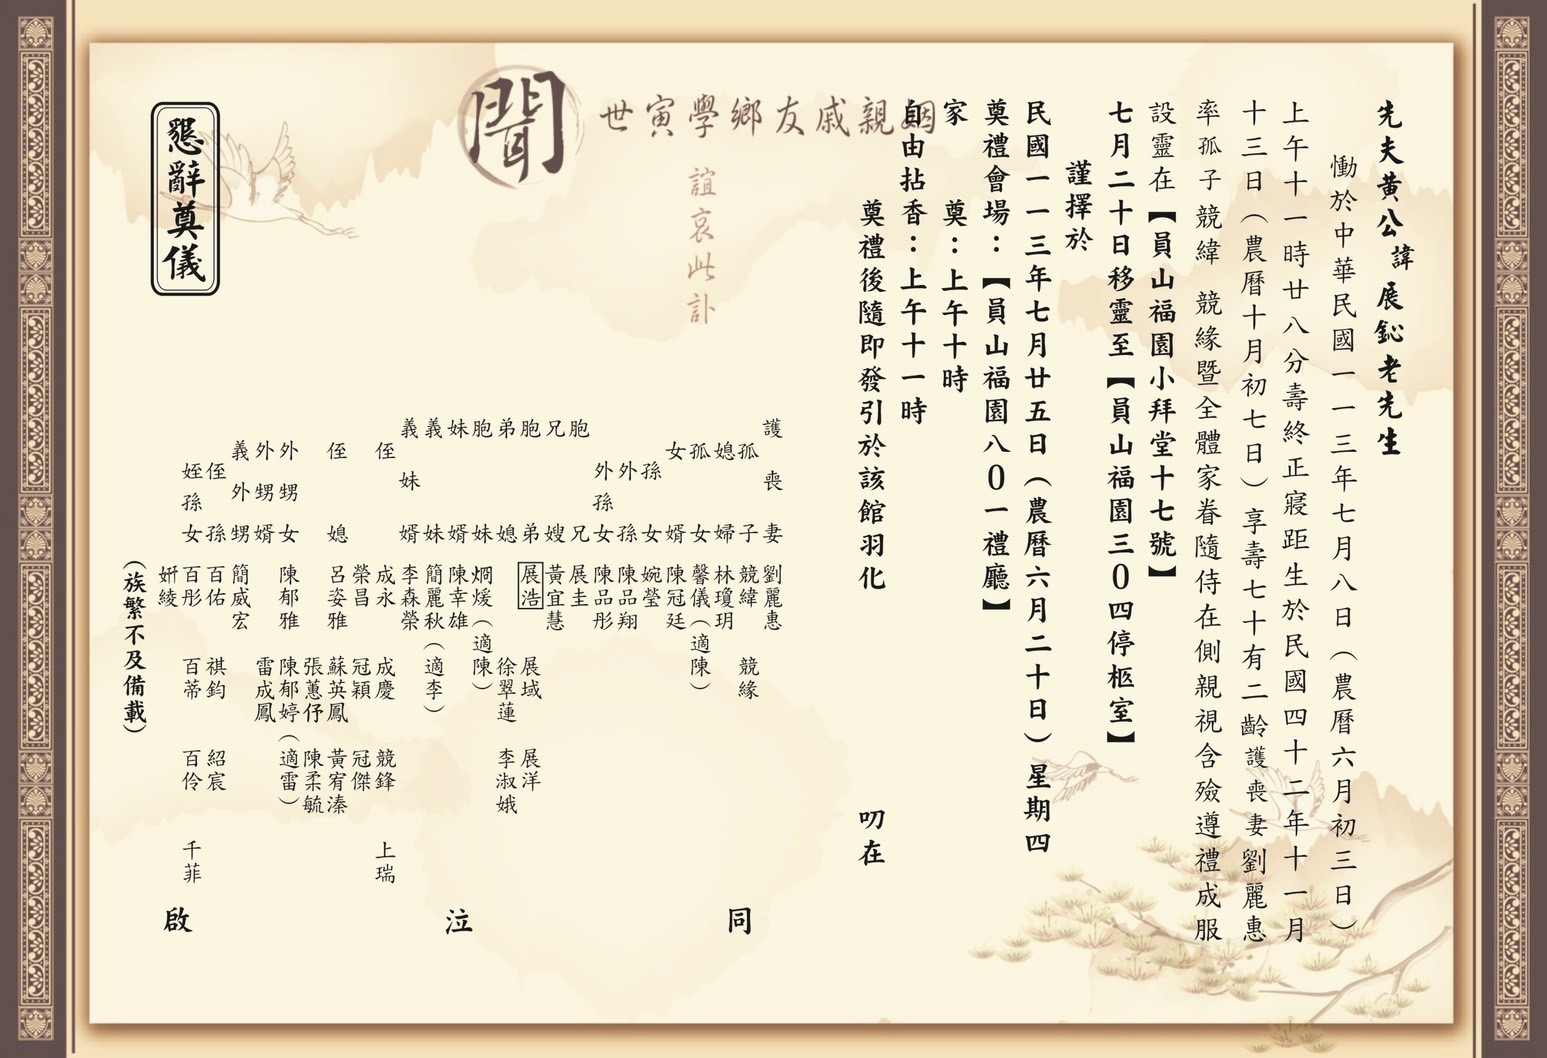 先夫黃公諱展鈊老先生
慟於中華民國一一三年七月八日（農曆六月初三日）
上午十一時廿八分壽終正寢距生於民國四十二年十一月
十三日（農曆十月初七日）享壽七十有二齡護喪妻劉麗惠
率孤子競緯 競緣暨全體家眷隨侍在側親視含殮遵禮成服
設靈在【員山福園小拜堂十七號】
七月二十日移靈至【員山福園三0四停柩室】
謹擇於
民國一一三年七月廿五日（農曆六月二十日）星期四
奠禮會場：【員山福園八0一禮廳】
家奠：上午十時
自由拈香：上午十一時
奠禮後隨即發引於該館羽化 叨在
姻親戚友鄉學寅世
誼哀此訃
聞
護喪妻 劉麗惠
孤子 競緯 競緣
媳婦 林瓊玥
孤女 馨儀（適陳）
女婿 陳冠廷
孫女 婉瑩
外孫 陳品翔
外孫女 陳品彤
胞兄 展圭
兄嫂 黃宜慧
胞弟 展浩 展域 展洋
弟媳 徐翠蓮 李淑娥
胞妹 烱煖（適陳）
妹婿 陳幸雄
義妹 簡麗秋（適李）
義妹婿 李森榮
侄 成永 成慶 競鋒 上瑞
榮昌 冠穎 冠傑
侄媳 呂姿雅 蘇英鳳 黃宥溱
張蕙伃 陳柔毓
外甥女 陳郁雅 陳郁婷（適雷）
外甥婿 雷成鳳
義外甥 簡威宏
侄孫 百佑 祺鈞 紹宸
姪孫女 百彤 百蒂 百伶 千菲
妍綾
（族繁不及備載）
同 泣 啟
懇辭奠儀